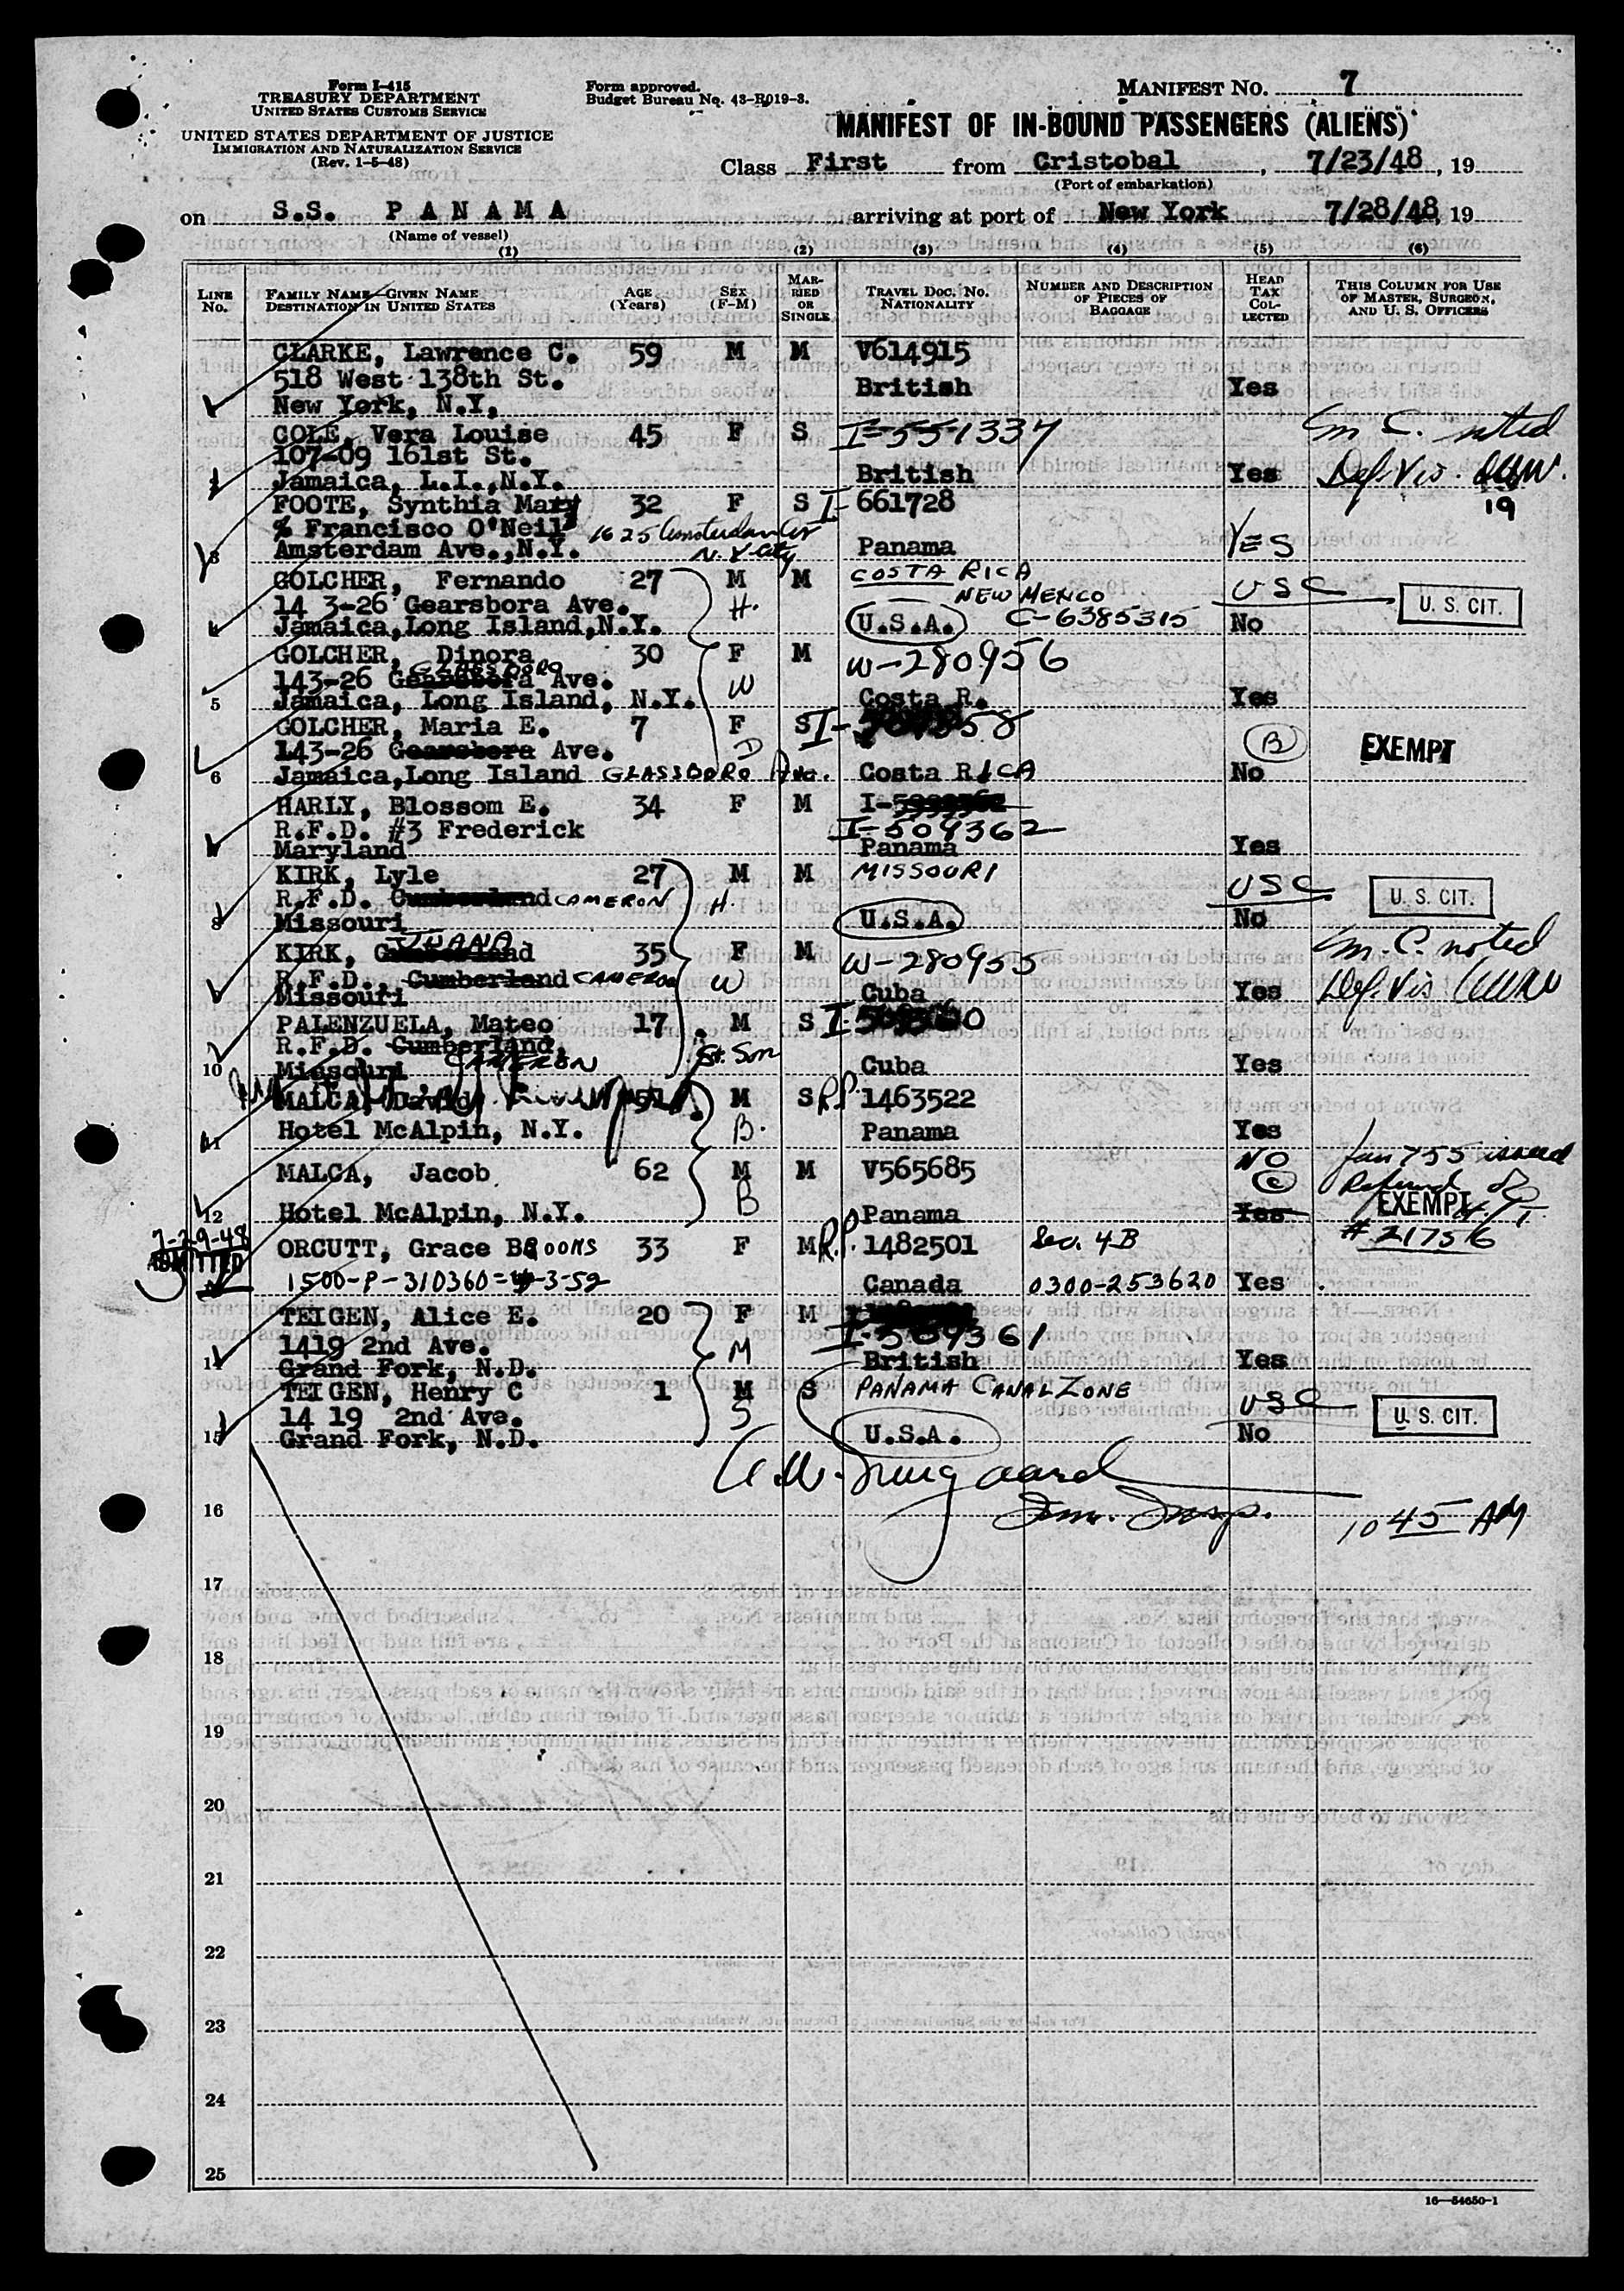 Form I-415
TREASURY DEPARTMENT
UNITED STATES CUSTOMS SERVICE
UNITED STATES DEPARTMENT OF JUSTICE
IMMIGRATION AND NATURALIZATION SERVICE
(Rev. 1-5-48)
Form approved.
Budget Bureau No. 43-R019-3.
MANIFEST NO. 7
MANIFEST OF IN-BOUND PASSENGERS (ALIENS)
Class First from Cristobal, 7/23/48, 19
(Port of embarkation)
on S.S. PANAMA arriving at port of New York 7/28/48, 19
(Name of vessel)
(1) (2) (3) (4) (5) (6)
LINE NO. FAMILY NAME—GIVEN NAME DESTINATION IN UNITED STATES AGE (Years) SEX (F-M) MARRIED OR SINGLE TRAVEL DOC. NO. NATIONALITY NUMBER AND DESCRIPTION OF PIECES OF BAGGAGE HEAD TAX COLLECTED THIS COLUMN FOR USE OF MASTER, SURGEON, AND U. S. OFFICERS
CLARKE, Lawrence C. 59 M M V614915
518 West 138th St.
New York, N.Y, British Yes
COLE, Vera Louise 45 F S I-551337 m C. noted
107-09 161st St.
Jamaica, L.I.,N.Y. British Yes Def. Vis.
FOOTE, Synthia Mary 32 F S I- 661728 19
% Francisco O'Neil 1625 Amsterdam Av
Amsterdam Ave.,N.Y. N.Y. City Panama YES
3
GOLCHER, Fernando 27 M M COSTA RICA
14 3-26 Gearsbora Ave. H. NEW MEXICO USC U. S. CIT.
Jamaica,Long Island,N.Y. U.S.A. C-6385315 No
GOLCHER, Dinora 30 F M W-280956
GLASSBORO
143-26 Gearsbora Ave. W
5 Jamaica, Long Island, N.Y. Costa R. Yes
GOLCHER, Maria E. 7 F S I-
143-26 Gearsbora Ave. D B EXEMPT
6 Jamaica,Long Island GLASSBORO Ave. Costa RICA No
HARLY, Blossom E. 34 F M I-
R.F.D. #3 Frederick I-509362
Maryland Panama Yes
KIRK, Lyle 27 M M MISSOURI
R.F.D. CAMERON H. USC U. S. CIT.
8 Missouri U.S.A. No
JUANA
KIRK, 35 F M W-280955 m. C. noted
R.F.D., Cumberland CAMERON W
Missouri Cuba Yes Def. Vis
PALENZUELA, Mateo 17 M S I-
R.F.D. Cumberland, St. Son
10 Missouri CAMERON Cuba Yes
MALCA, David 51 M S R.P. 1463522
11 Hotel McAlpin, N.Y. B. Panama Yes
MALCA, Jacob 62 M M V565685 NO Jan 755 issued
C Refund of
12 Hotel McAlpin, N.Y. B Panama Yes EXEMPT
7-29-48 ORCUTT, Grace BROOKS 33 F M R.P. 1482501 Sec. 4B # 21756
ADMITTED
1500-P-310360=4-3-52 Canada 0300-253620 Yes
TEIGEN, Alice E. 20 F M
1419 2nd Ave. M I-509361
14 Grand Fork, N.D. British Yes
TEIGEN, Henry C 1 M S PANAMA CANAL ZONE
14 19 2nd Ave. S USC U. S. CIT.
15 Grand Fork, N.D. U.S.A. No
Imm. Insp. 10 45 AM
16
17
18
19
20
21
22
23
24
25
16—54650-1